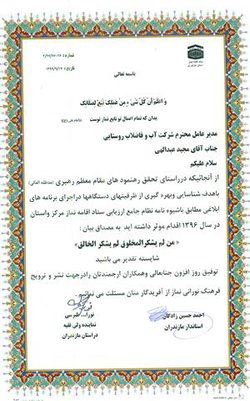 باسمه تعالی
وَ اعْلَمْ أَنَّ كُلَّ شَيْءٍ مِنْ عَمَلِكَ تَبَعٌ لِصَلَاتِكَ
بدان که تمام اعمال تو تابع نماز توست
مدیر عامل محترم شرکت آب و فاضلاب روستایی
جناب آقای مجید عبدالهی
سلام علیکم
از آنجائیکه درراستای تحقق رهنمود های مقام معظم رهبری (مدظله العالی)
باهدف شناسایی وبهره گیری از ظرفیتهای دستگاهها دراجرای برنامه های
ابلاغی مطابق باشیوه نامه نظام جامع ارزیابی ستاد اقامه نماز مرکز واستان
در سال ۱۳۹۶ اقدام موثر داشته اید به مصداق بیان :
« من لم یشکرالمخلوق لم یشکر الخالق»
شایسته تقدیر می باشید
توفیق روز افزون جنابعالی وهمکاران ارجمندتان رادرجهت نشر و ترویج
فرهنگ نورانی نماز از آفریدگار منان مسئلت می نمائیم
احمد حسین زادگان
استاندار مازندران
نماینده ولی فقیه
در استان مازندران